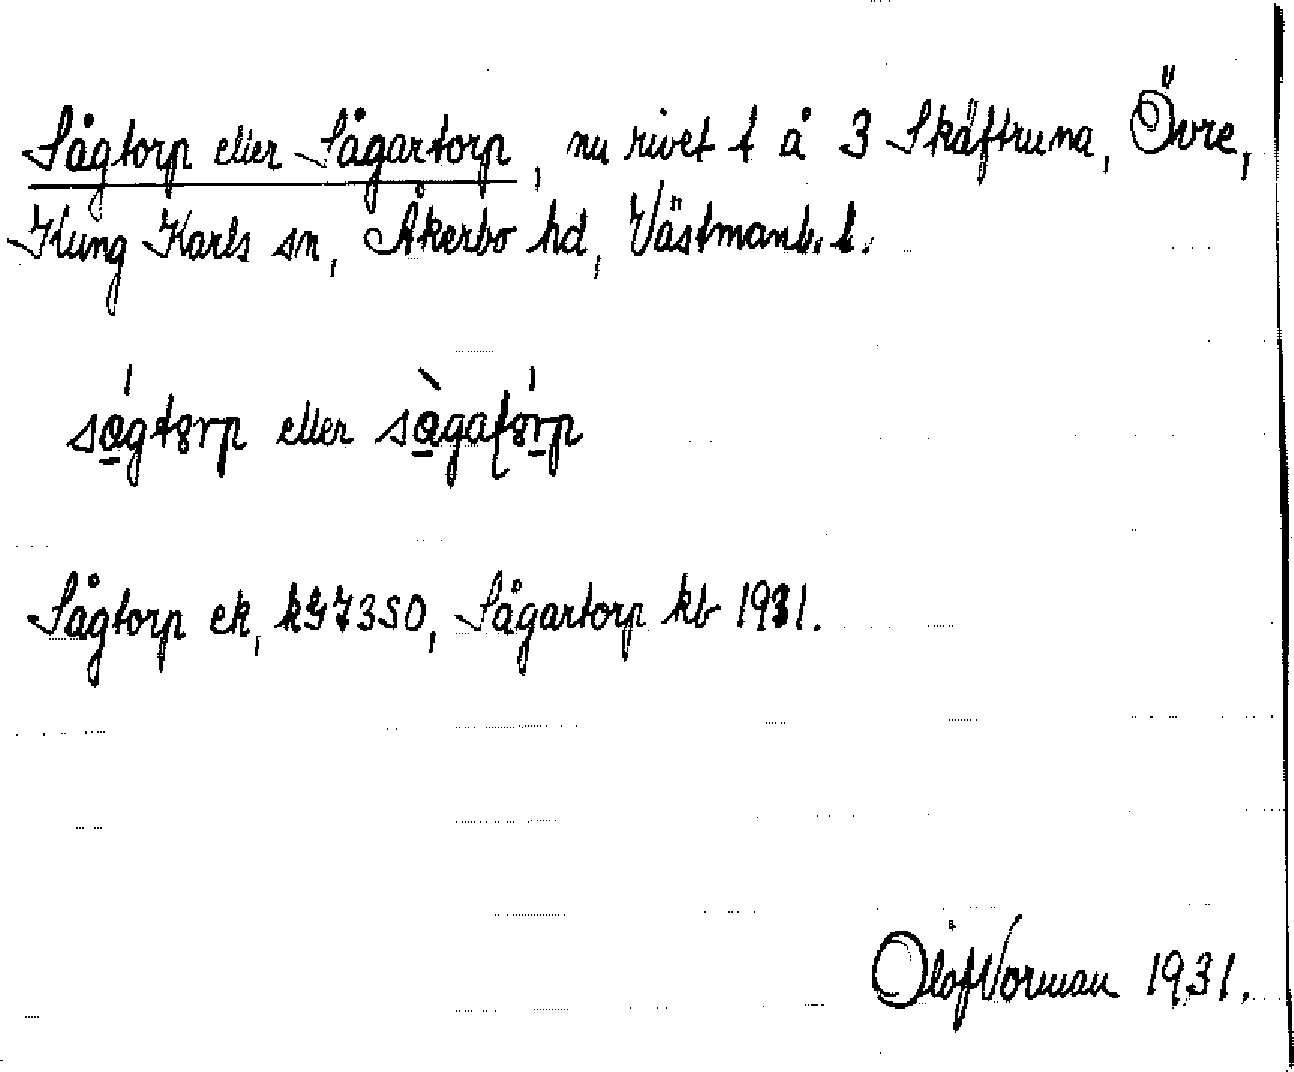 Sågtorp eller Sågartorp, nu rivet t å 3 Skäftruna, Övre,
Kung Karls sn, Åkerbo hd, Västmanl. l.
ságtorp eller sàgatórp
Sågtorp ek, kG7350, Sågartorp kb 1931.
Olof Norman 1931.